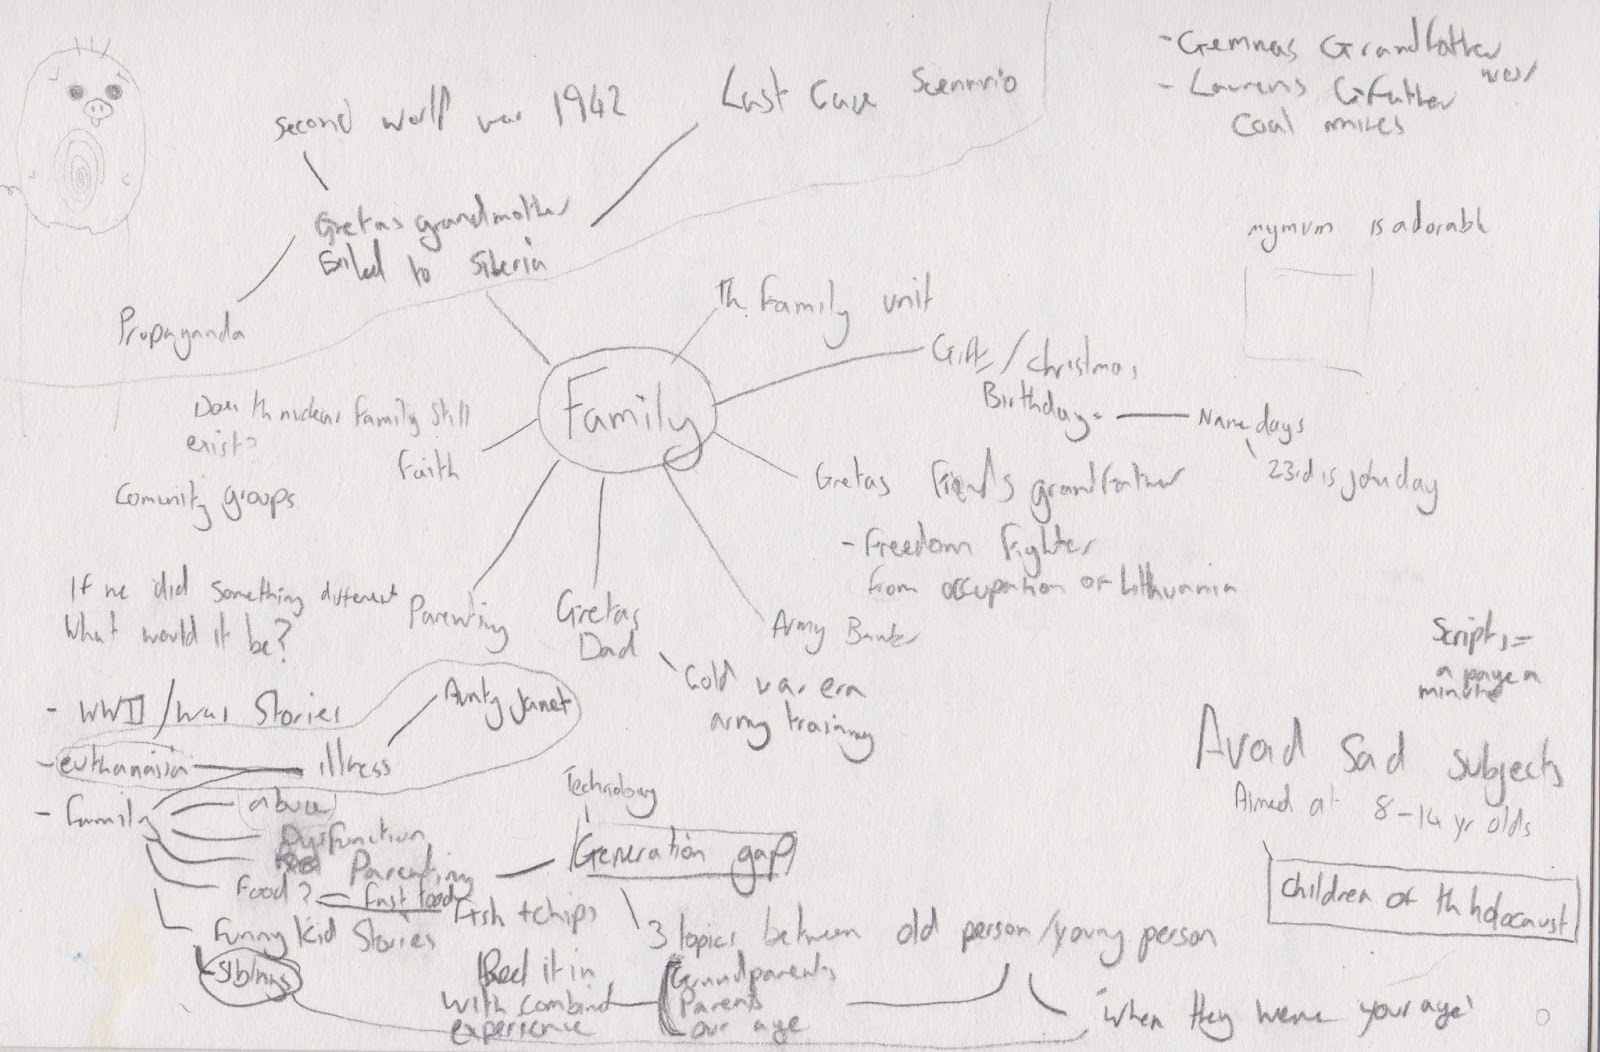 - Gemmas Grandfather
war
- Laurens G.Father
Coal mines
Last Case Scenario
Second world war 1942
Gretas grandmother
Exiled to Siberia
Propaganda
my mum is adorable
Th Family unit
Gifts / Christmas,
Birthdays
Name days
23rd is john day
Family
Does th nuclear family still
exist?
Faith
Comunity groups
Gretas Friends grandfather
- Freedom Fighter
From occupation of Lithuania
If we did something different
What would it be?
Parenting
Gretas
Dad
Army Banter
Cold war era
army training
Scripts =
a page a
minute
- WWII / War Stories
Aunty Janet
- euthanasia
illness
Avoid Sad Subjects
Aimed at 8-14 yr olds
Children of th holocaust
- Family
abuse
Dysfunction
Parenting
Technology
Generation gap
Food? = Fast food
Fish + chips
Funny Kid Stories
3 topics between old person/young person
- Siblings
it in
with combind
experience
Grandparents
Parents
our age
'When they were your age'